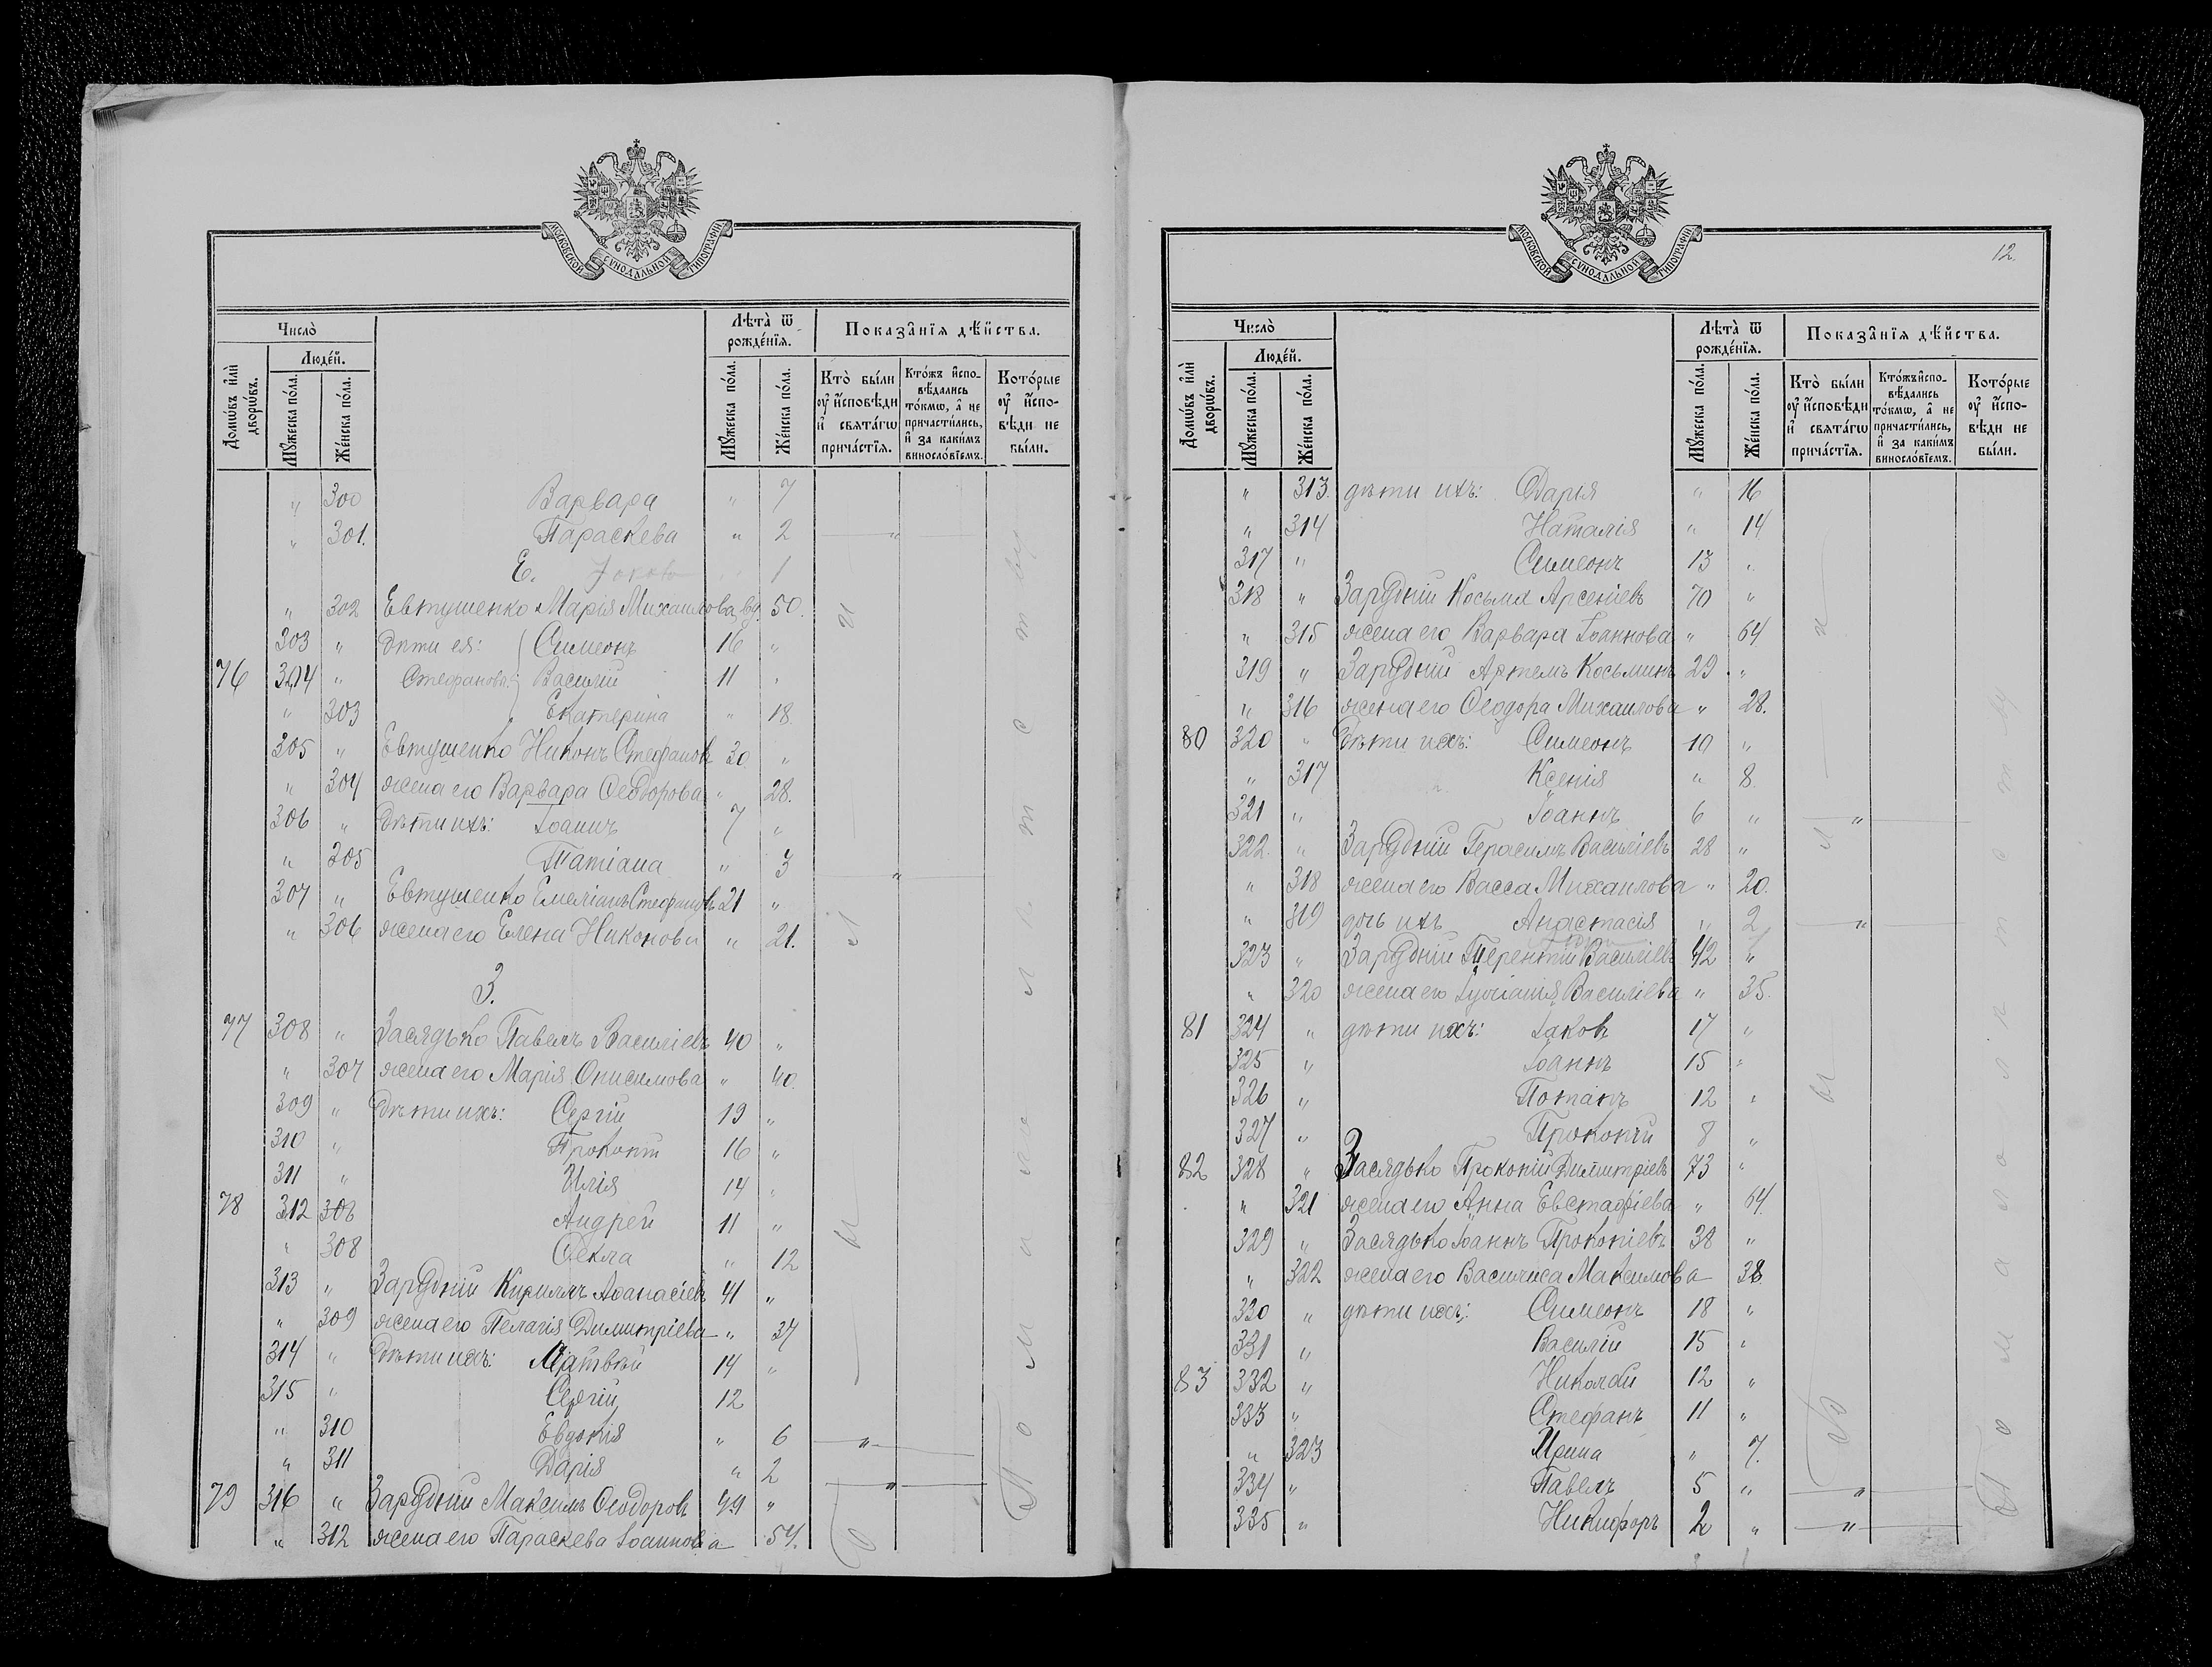 МОСКОВСКОЙ СУНОДАЛЬНОЙ ТИПОГРАФІИ
Число̀
Люде́й.
Домѡ́въ и҆лѝ дворѡ́въ.
Мꙋ́жеска по́ла.
Же́нска по́ла.
Лѣ́та ѿ рожде́нїѧ.
Мꙋ́жеска по́ла.
Же́нска по́ла.
Показа̑нїѧ дѣ́йства.
Кто̀ бы́ли оу҆ и҆сповѣ́ди и҆ свѧта́гѡ прича́стїѧ.
Кто́жъ и҆спо-вѣ́дались то́кмѡ, а҆ не причасти́лись, и҆ за каки́мъ винosло́вїемъ.
Кото́рые оу҆ и҆спо-вѣ́ди не бы́ли.
" 300 Варвара " 7
" 301. Параскева " 2 "
Е. 1
" 302 Евтушенко Марія Михаилова, вд. 50.
303 " дѣти ея: Симеонъ 16 "
76 304 " Стефановы Василій 11 "
" 303 Екатерина " 18
305 " Евтушенко Никонъ Стефановъ 30 "
" 304 жена его Варвара Ѳеодорова " 28.
306 " дѣти ихъ: Іоаннъ 7 "
" 305 Татіана " 3 "
307 " Евтушенко Емеліанъ Стефановъ 21 "
" 306 жена его Елена Никонова " 21.
З.
77 308 " Засядько Павелъ Василіевъ 40 "
" 307 жена его Марія Онисимова " 40.
309 " дѣти ихъ: Сергій 19 "
310 " Прокопій 16 "
311 " Илія 14 "
78 312 308 Андрей 11 "
" 308 Ѳекла " 12
313 " Зарудній Кириллъ Аѳанасіевъ 41 "
" 309 жена его Пелагія Димитріева " 37
314 " дѣти ихъ: Матвѣй 14 "
315 " Сергій 12
" 310 Евдокія " 6 "
" 311 Дарія " 2 "
79 316 " Зарудній Максимъ Ѳеодоровъ 49 "
" 312 жена его Параскева Іоаннова 54.
МОСКОВСКОЙ СУНОДАЛЬНОЙ ТИПОГРАФІИ
12.
Число̀
Люде́й.
Домѡ́въ и҆лѝ дворѡ́въ.
Мꙋ́жеска по́ла.
Же́нска по́ла.
Лѣ́та ѿ рожде́нїѧ.
Мꙋ́жеска по́ла.
Же́нска по́ла.
Показа̑нїѧ дѣ́йства.
Кто̀ бы́ли оу҆ и҆сповѣ́ди и҆ свѧта́гѡ прича́стїѧ.
Кто́жъ и҆спо-вѣ́дались то́кмѡ, а҆ не причасти́лись, и҆ за каки́мъ винosло́вїемъ.
Кото́рые оу҆ и҆спо-вѣ́ди не бы́ли.
" 313. дѣти ихъ: Дарія " 16
" 314 Наталія " 14
317 " Симеонъ 13 "
318 " Зарудній Косьма Арсеніевъ 70 "
" 315 жена его Варвара Іоаннова " 64
319 " Зарудній Артемъ Косьминъ 29 "
" 316 жена его Ѳеодора Михаилова " 28.
80 320 " дѣти ихъ: Симеонъ 10 "
" 317 Ксенія " 8
321 " Іоаннъ 6 " "
322 " Зарудній Герасимъ Василіевъ 28 "
" 318 жена его Васса Михаилова " 20.
" 319 дочь ихъ Анастасія " 2 "
323 " Зарудній Терентій Василіевъ 42 "
" 320 жена его Іуліанія Василіева " 35.
81 324 " дѣти ихъ: Іаковъ 17 "
325 " Іоаннъ 15 "
326 " Потапъ 12 "
327 " Прокопій 8 "
82 328 " Засядько Прокопій Димитріевъ 73 "
" 321 жена его Анна Евстафіева " 64.
329 " Засядько Іоаннъ Прокопіевъ 38 "
" 322 жена его Василиса Максимова 38
330 " дѣти ихъ: Симеонъ 18 "
331 " Василій 15 "
83 332 " Николай 12 "
333 " Стефанъ 11 "
" 323 Ирина " 7.
334 " Павелъ 5 " "
335 " Никифоръ 2 " "